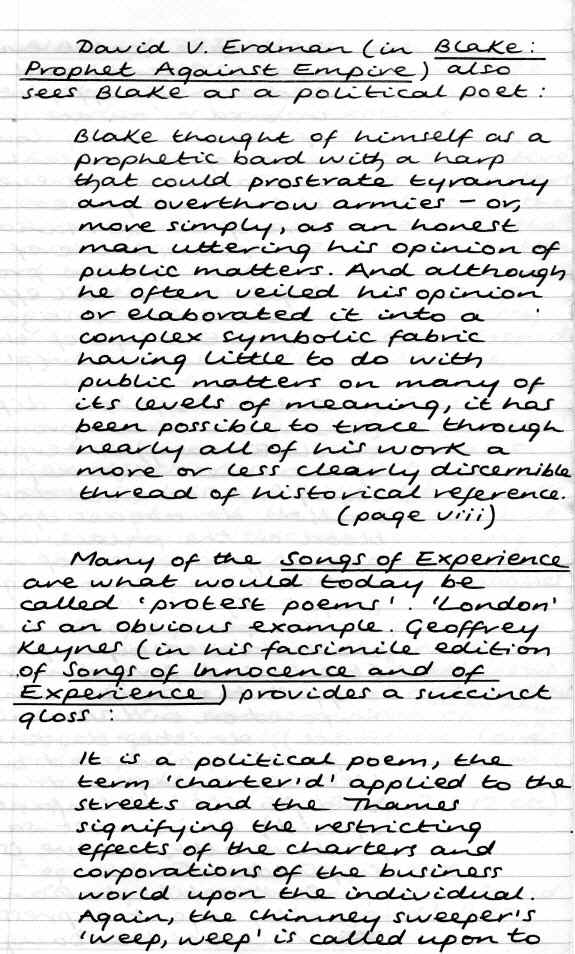 David V. Erdman (in Blake:
Prophet Against Empire) also
sees Blake as a political poet:
Blake thought of himself as a
prophetic bard with a harp
that could prostrate tyranny
and overthrow armies – or,
more simply, as an honest
man uttering his opinion of
public matters. And although
he often veiled his opinion
or elaborated it into a
complex symbolic fabric
having little to do with
public matters on many of
its levels of meaning, it has
been possible to trace through
nearly all of his work a
more or less clearly discernible
thread of historical reference.
(page viii)
Many of the Songs of Experience
are what would today be
called 'protest poems'. 'London'
is an obvious example. Geoffrey
Keynes (in his facsimile edition
of Songs of Innocence and of
Experience) provides a succinct
gloss:
It is a political poem, the
term 'charter'd' applied to the
streets and the Thames
signifying the restricting
effects of the charters and
corporations of the business
world upon the individual.
Again, the chimney sweeper's
'weep, weep' is called upon to